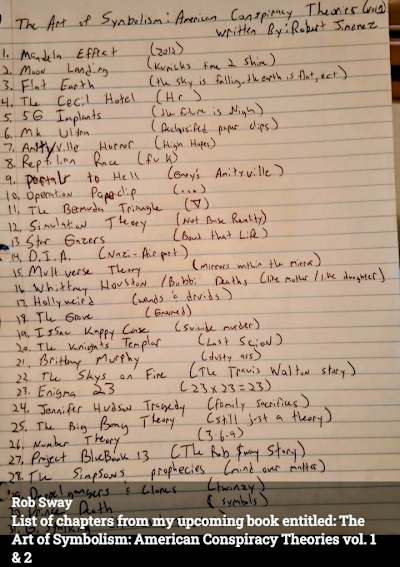 The Art of Symbolism: American Conspiracy Theories (vol 1)
written By: Robert Jimenez
1. Mandela Effect (2012)
2. Moon Landing (Kubricks time 2 shine)
3. Flat Earth (the sky is falling, the earth is flat, ect)
4. The Cecil Hotel (Hr)
5. 5G Implants (the future is Nigh)
6. Mk Ultra (Declassified paper clips)
7. Amityville Horror (High Hopes)
8. Reptilian Race (fu K)
9. portals to Hell (Gary's Amityville)
10. Operation Paperclip (...)
11. The Bermuda Triangle (▽)
12. Simulation Theory (Not Base Reality)
13. Star Gazers
14. D.I.A. (Nazi-Airport)
15. Multiverse Theory (mirrors within the mirror)
16. Whittney Houston / Bobbi Deaths (like mother / like daughter)
17. Hollyweird (wands & druids)
18. The Grove
19. Issac Kappy Case (suicide murder)
20. The Knights Templar (Last Scion)
21. Brittney Murphy (dusty ass)
22. The Skys on Fire (The Travis Walton story)
23. Enigma 23 (23 x 23 = 23)
24. Jennifer Hudson Tragedy (family sacrifices)
25. The Big Bang Theory (still just a theory)
26. Number Theory (3.6.9)
27. Project BlueBook 13 (The Rob $way Story)
28. The Simpsons prophecies (mind over matter)
& Clones (twinzy)
Death (symbols)
Rob Sway
List of chapters from my upcoming book entitled: The
Art of Symbolism: American Conspiracy Theories vol. 1
& 2